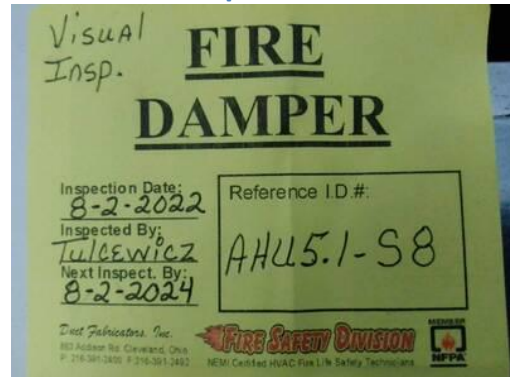 Visual
Insp.
FIRE
DAMPER
Inspection Date:
8-2-2022
Inspected By:
Tulcewicz
Next Inspect. By:
8-2-2024
Reference I.D.#:
AHU5.1-S8
Duct Fabricators, Inc.
883 Addison Rd. Cleveland, Ohio
P: 216-391-2400 F: 216-391-2492
FIRE SAFETY DIVISION
NEMI Certified HVAC Fire Life Safety Technicians
MEMBER
NFPA